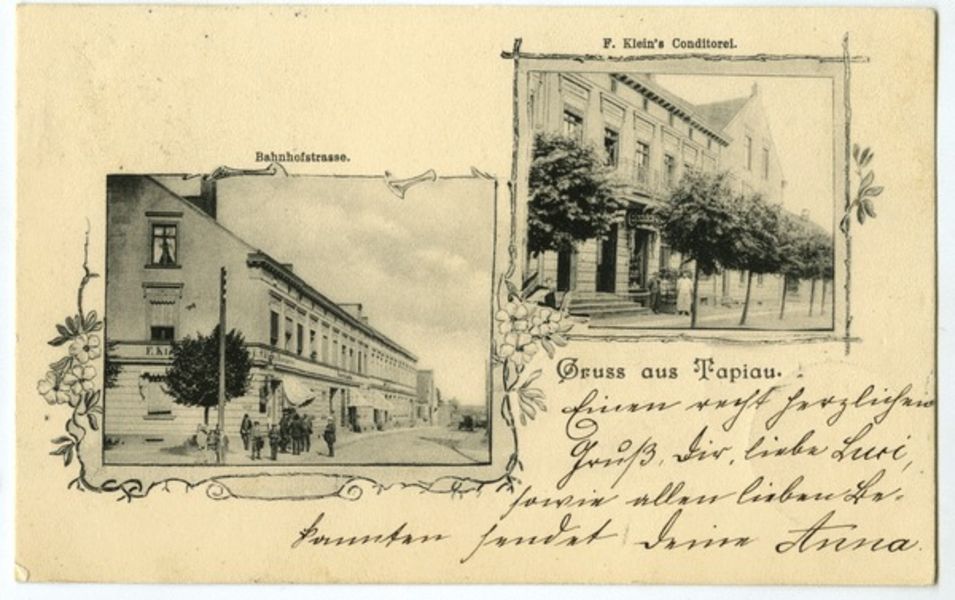 F. Klein's Conditorei.
Bahnhofstrasse.
Gruss aus Tapiau.
Einen recht herzlichen
Gruß, Dir, liebe Luci,
sowie allen lieben Be-
kannten sendet deine Anna.